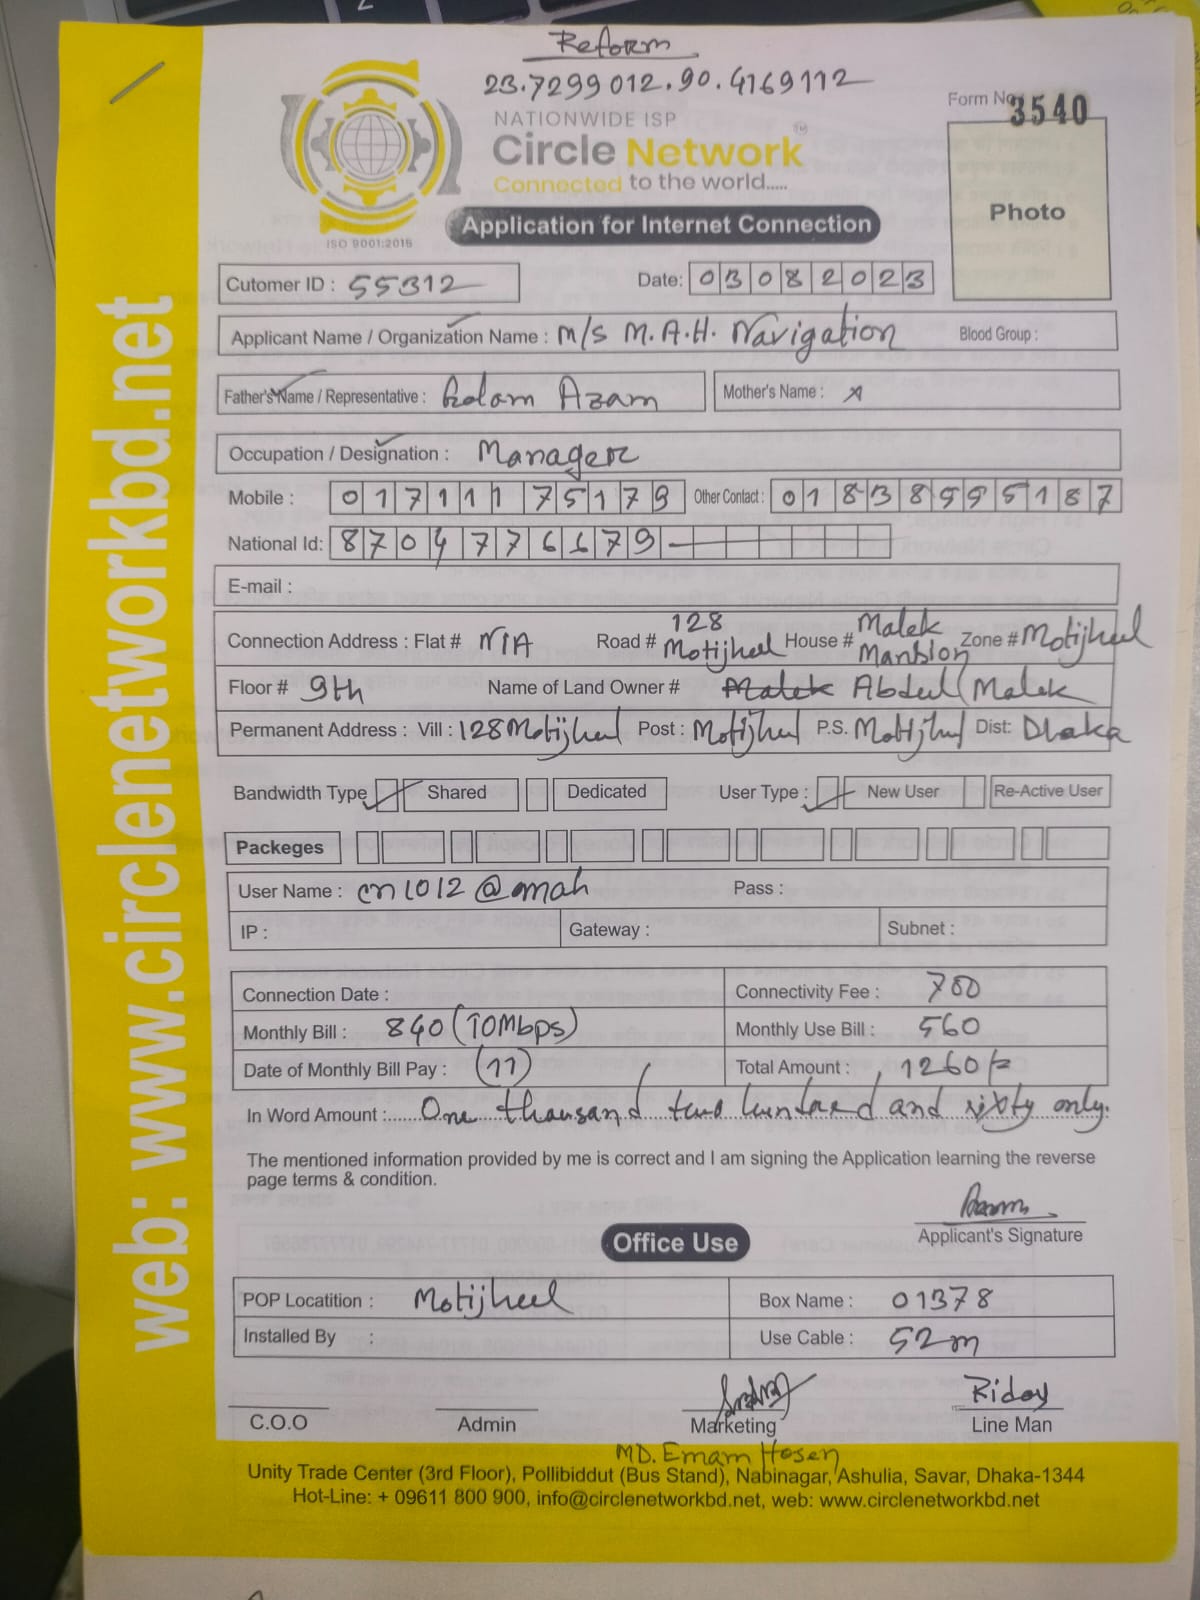 Reform
23.7299012.90.4169112
Form No 3540
NATIONWIDE ISP
Circle Network
TM
Connected to the world.....
ISO 9001:2015
Application for Internet Connection
Photo
Cutomer ID : 55312
Date: 03082023
Applicant Name / Organization Name : M/S M.A.H. Navigation Blood Group :
Father's Name / Representative : Golam Azam Mother's Name : x
Occupation / Designation : Manager
Mobile : 01711175179 Other Contact : 01838595187
National Id: 8704776679
E-mail :
Connection Address : Flat # N/A Road # 128 Motijheel House # Malek Mansion Zone # Motijheel
Floor # 9th Name of Land Owner # Malek Abdul Malek
Permanent Address : Vill : 128 Motijheel Post : Motijheel P.S. Motijheel Dist: Dhaka
Bandwidth Type Shared Dedicated User Type : New User Re-Active User
Packeges
User Name : cn1012@mah Pass :
IP : Gateway : Subnet :
Connection Date : Connectivity Fee : 700
Monthly Bill : 840 (10Mbps) Monthly Use Bill : 560
Date of Monthly Bill Pay : (11) Total Amount : 1260/=
In Word Amount :...... One thousand two hundred and sixty only.
The mentioned information provided by me is correct and I am signing the Application learning the reverse
page terms & condition.
Azam
Applicant's Signature
Office Use
POP Locatition : Motijheel Box Name : 01378
Installed By : Use Cable : 52m
Riday
C.O.O Admin Marketing Line Man
MD. Emam Hosen
Unity Trade Center (3rd Floor), Pollibiddut (Bus Stand), Nabinagar, Ashulia, Savar, Dhaka-1344
Hot-Line: + 09611 800 900, info@circlenetworkbd.net, web: www.circlenetworkbd.net
web: www.circlenetworkbd.net